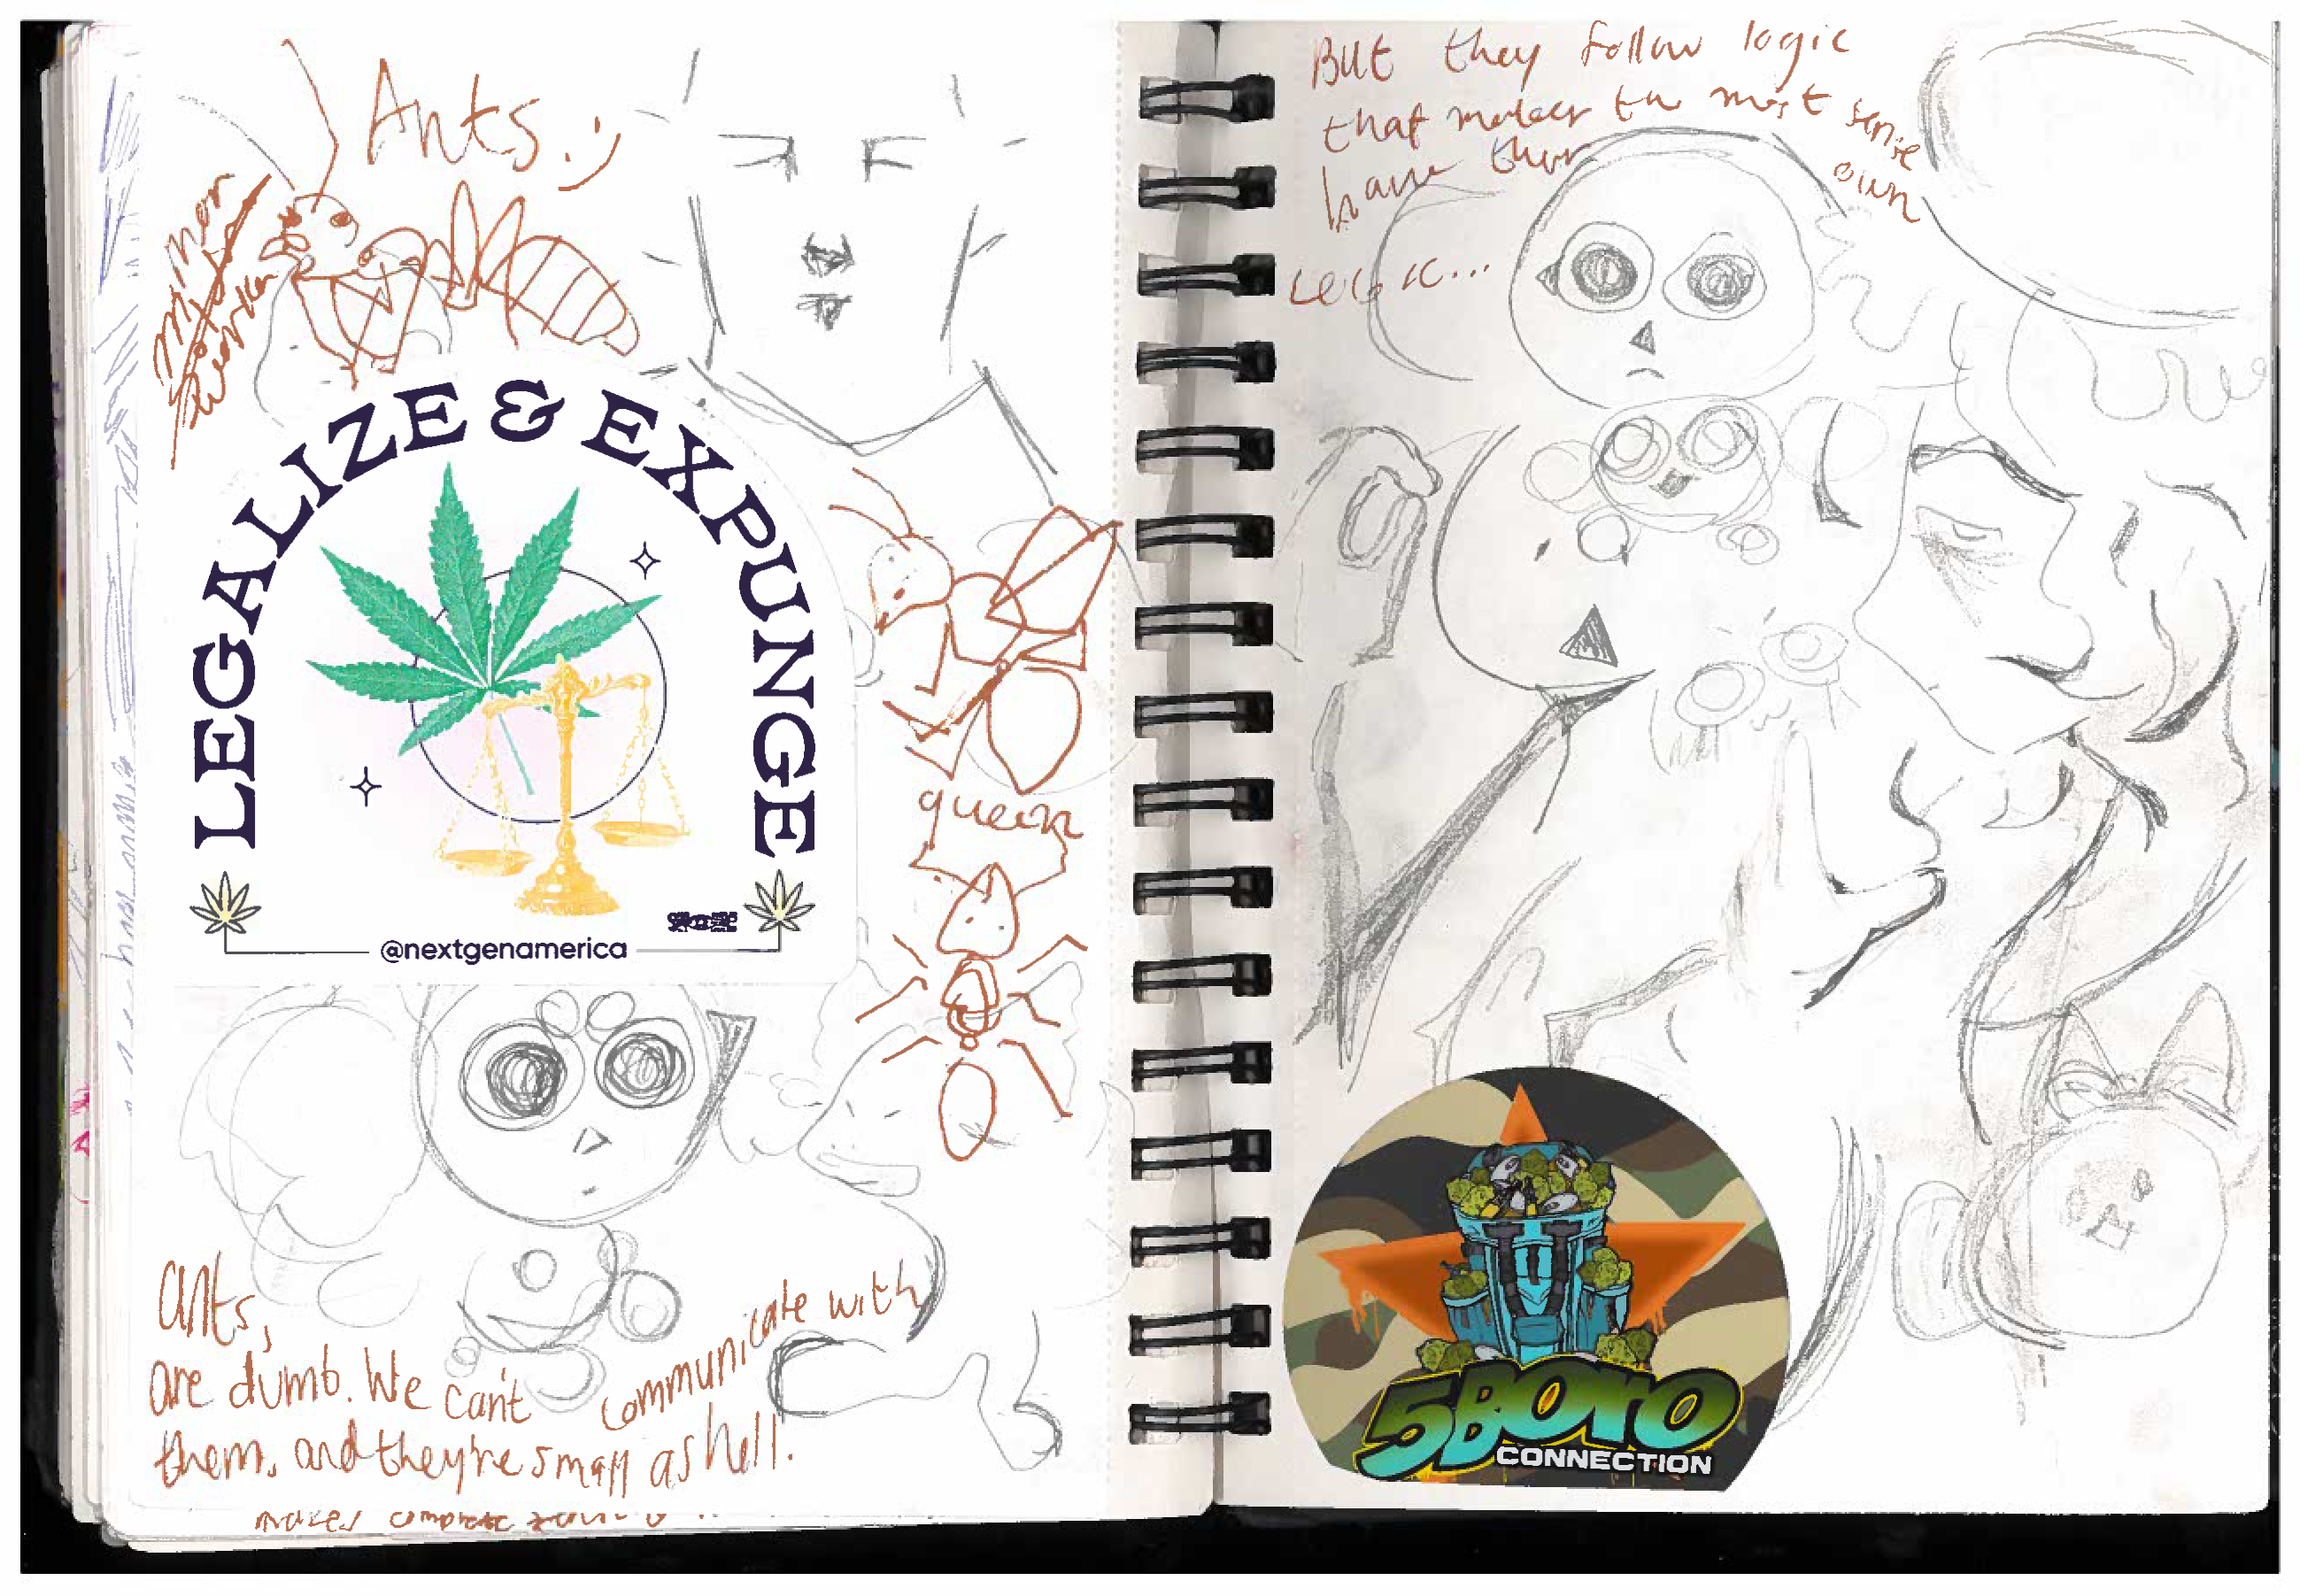 Ants :)
Minor
Worker
LEGALIZE & EXPUNGE
@nextgenamerica
queen
ants,
are dumb. We can't communicate with
them. and they're small as hell.
makes complete
But they follow logic
that makes the most sense
have their own
LOGIC...
5BOrO
CONNECTION